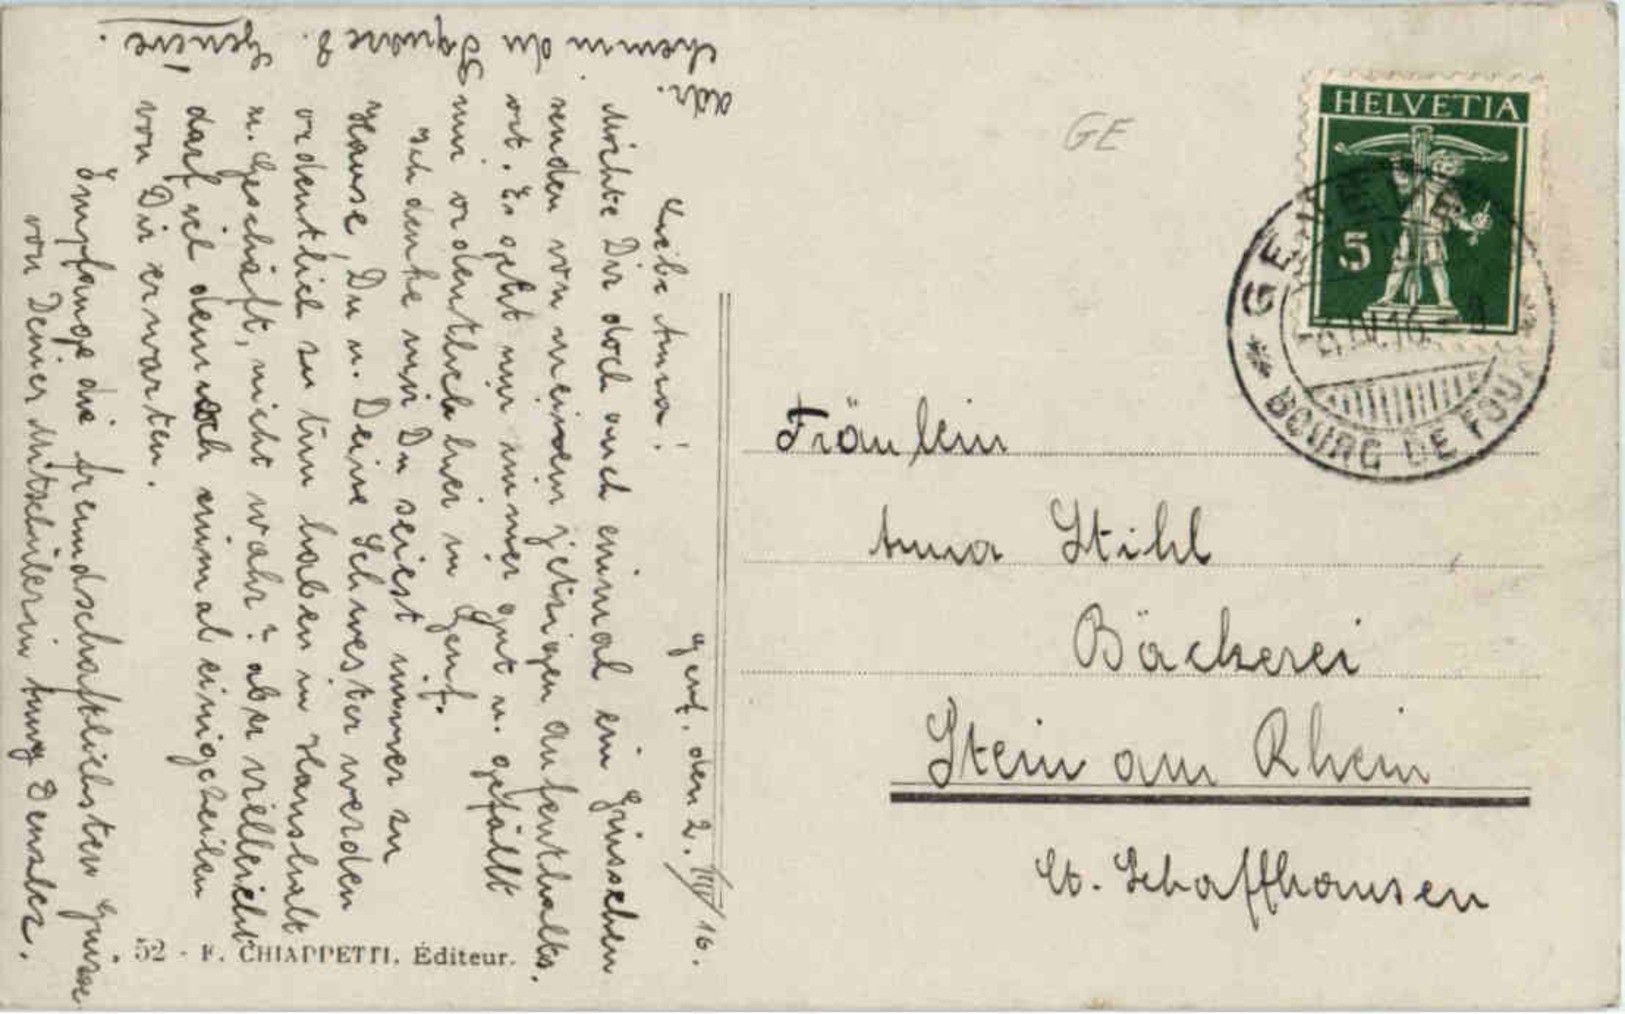 Genf, den 2. IIII/16.
Liebe Anna!
Möchte Dir doch auch einmal ein Grüsschen
senden von meinem jetzigen Aufenthalts-
ort. Es geht mir immer gut u. gefällt
mir ordentlich hier in Genf.
Ich denke mir Du seiest immer zu
Hause, Du u. Deine Schwester werden
ordentlich zu tun haben in Haushalt
u. Geschäft, nicht wahr? aber vielleicht
darf ich dennoch einmal einige Zeilen
von Dir erwarten.
Empfange die freundschaftlichsten Grüsse
von Deiner Mitschülerin Denzler.
Adr.
Chemin du Square 8. Genève.
52 - F. CHIAPPETTI, Éditeur.
GE
HELVETIA
5
GENEVE
IV.16
BOURG DE FOUR
Fräulein
Anna Stihl
Bäckerei
Stein am Rhein
Ct. Schaffhausen